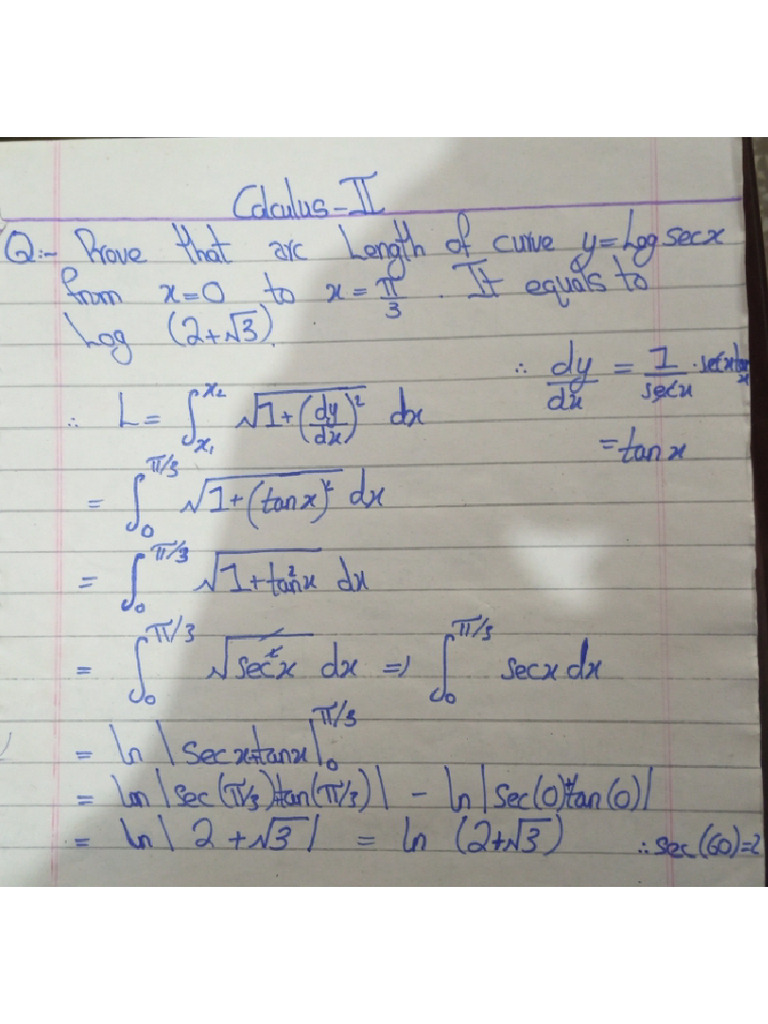 Calculus-II
Q:- Prove that arc Length of curve y=Log secx
from x=0 to x=π/3. It equals to
Log (2+√3)
∴ dy/dx = 1/secx ·secxtanx
=tanx
∴ L= ∫_{x₁}^{x₂} √(1+(dy/dx)²) dx
= ∫_0^{π/3} √(1+(tanx)²) dx
= ∫_0^{π/3} √(1+tan²x) dx
= ∫_0^{π/3} √(sec²x) dx => ∫_0^{π/3} secx dx
= ln |secx+tanx|_0^{π/3}
= ln |sec(π/3)+tan(π/3)| - ln |sec(0)+tan(0)|
= ln |2+√3| = ln (2+√3) ∴ sec(60)=2